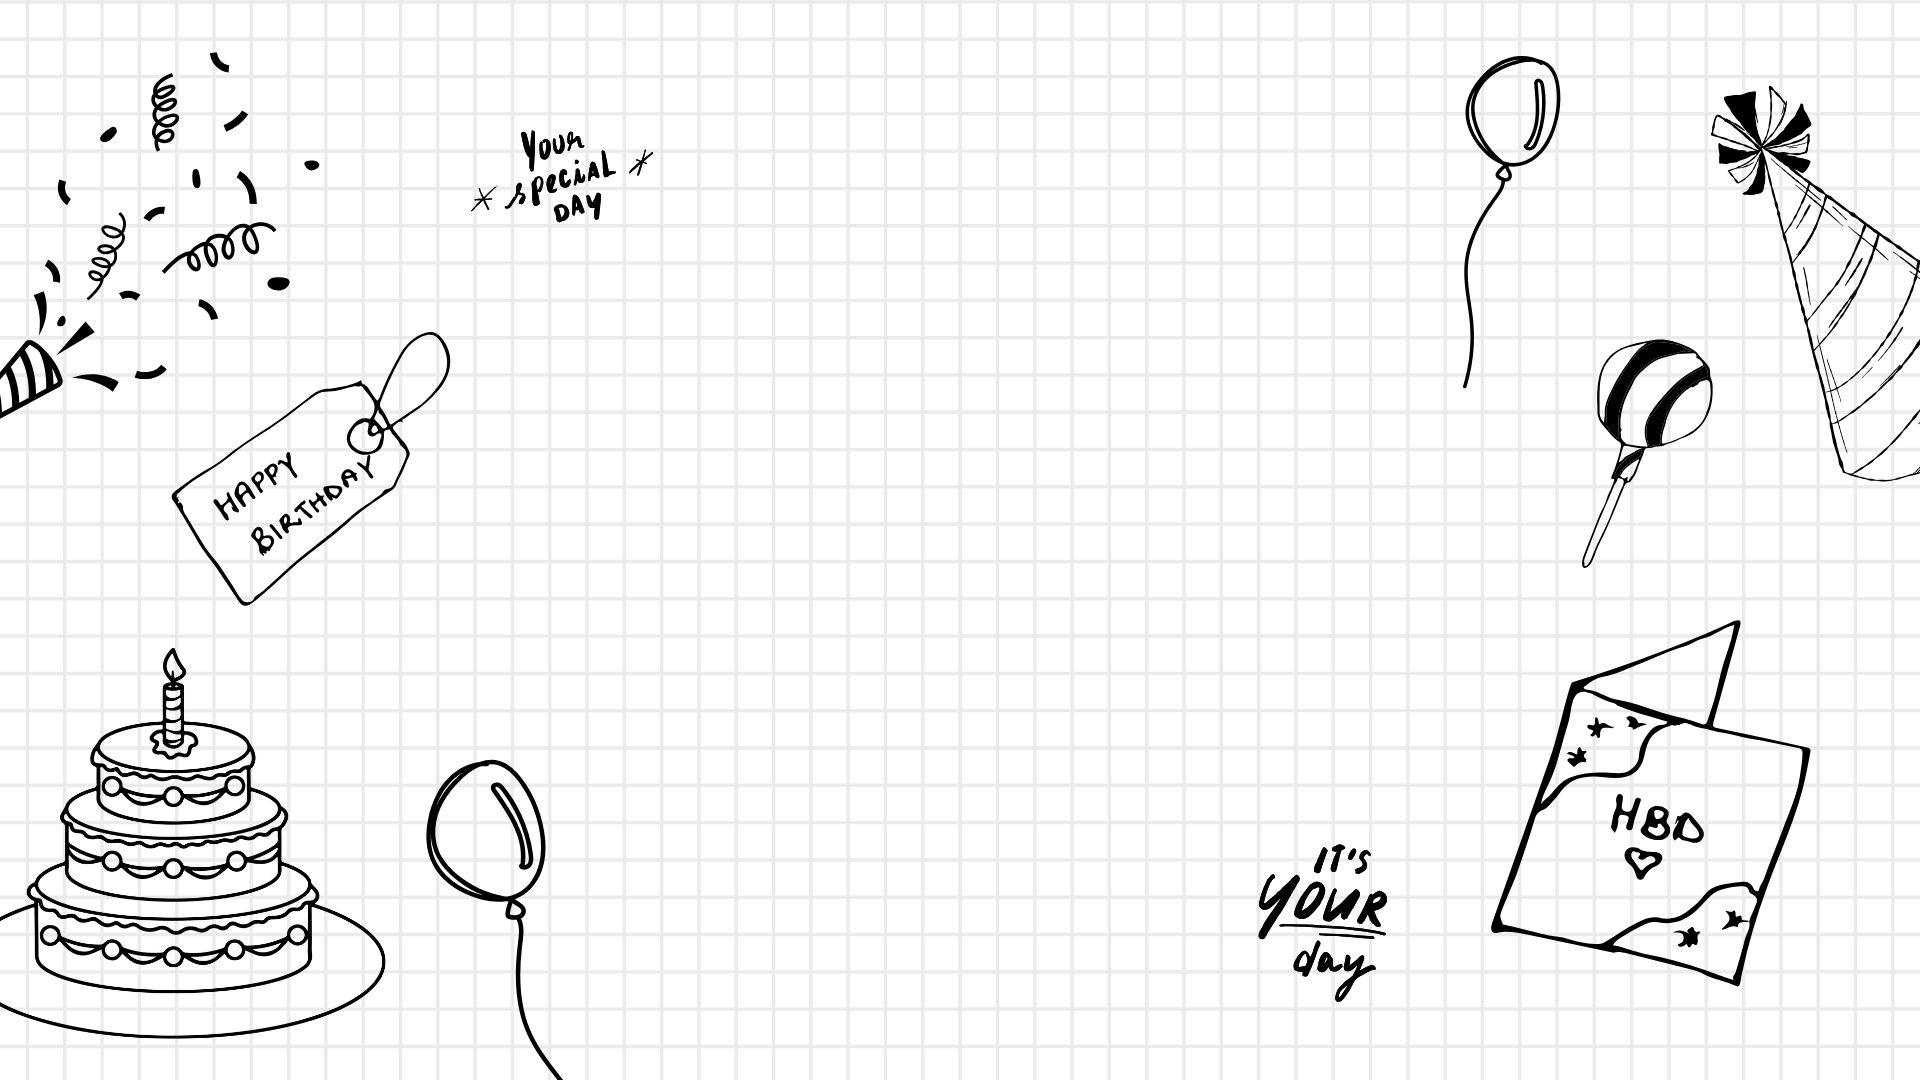 Your
special
DAY
HAPPY
BIRTHDAY
HBD
IT'S
YOUR
day